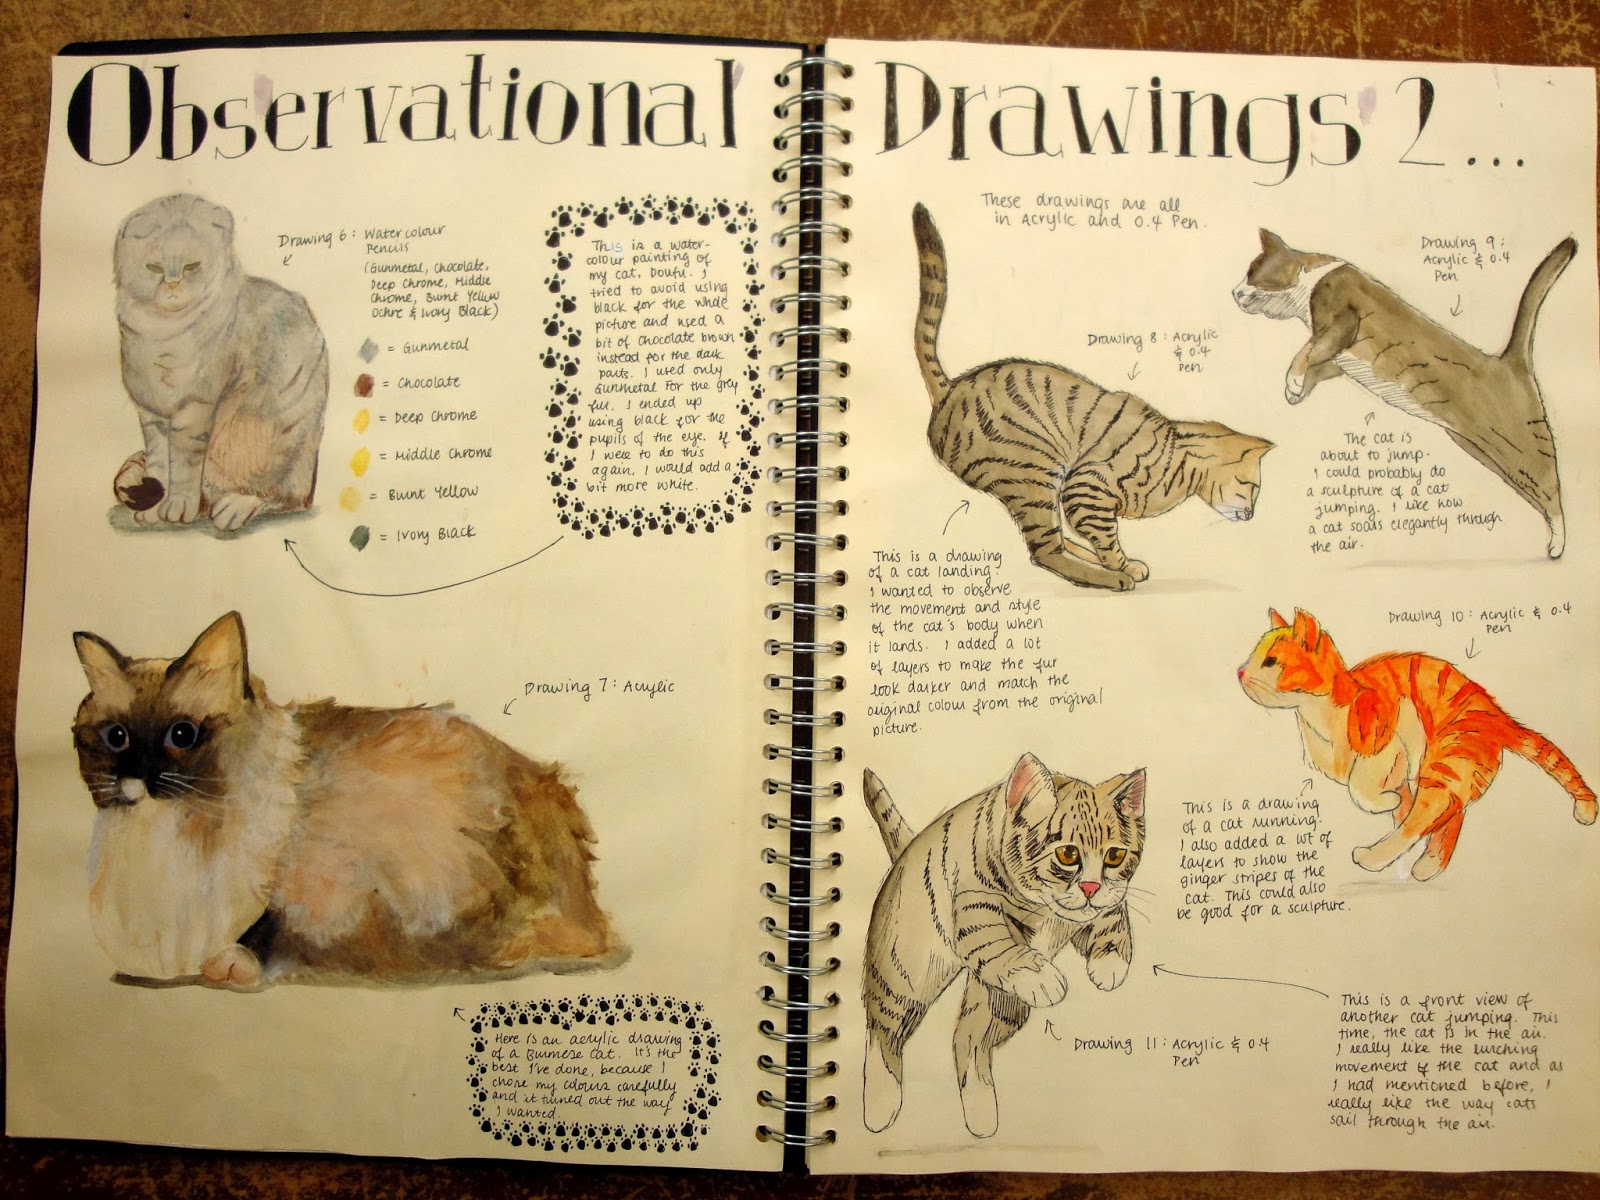 Observational
Drawing 6: Watercolour
Pencils
(Gunmetal, Chocolate,
Deep Chrome, Middle
Chrome, Burnt Yellow
Ochre & Ivory Black)
= Gunmetal
= Chocolate
= Deep Chrome
= Middle Chrome
= Burnt Yellow
= Ivory Black
This is a water-
colour painting of
my cat, Doufu. I
tried to avoid using
black for the whole
picture and used a
bit of chocolate brown
instead for the dark
parts. I used only
Gunmetal for the grey
fur. I ended up
using black for the
pupils of the eye. If
I were to do this
again, I would add a
bit more white.
Drawing 7: Acrylic
Here is an acrylic drawing
of a Burmese cat. It's the
best I've done, because I
chose my colours carefully
and it turned out the way
I wanted.
Drawings 2...
These drawings are all
in Acrylic and 0.4 Pen.
Drawing 8: Acrylic
& 0.4
Pen
This is a drawing
of a cat landing.
I wanted to observe
the movement and style
of the cat's body when
it lands. I added a lot
of layers to make the fur
look darker and match the
original colour from the original
picture.
Drawing 9:
Acrylic & 0.4
Pen
The cat is
about to jump.
I could probably do
a sculpture of a cat
jumping. I like how
a cat soars elegantly through
the air.
Drawing 10: Acrylic & 0.4
Pen
This is a drawing
of a cat running.
I also added a lot of
layers to show the
ginger stripes of the
cat. This could also
be good for a sculpture.
Drawing 11: Acrylic & 0.4
Pen
This is a front view of
another cat jumping. This
time, the cat is in the air.
I really like the lurching
movement of the cat and as
I had mentioned before, I
really like the way cats
sail through the air.